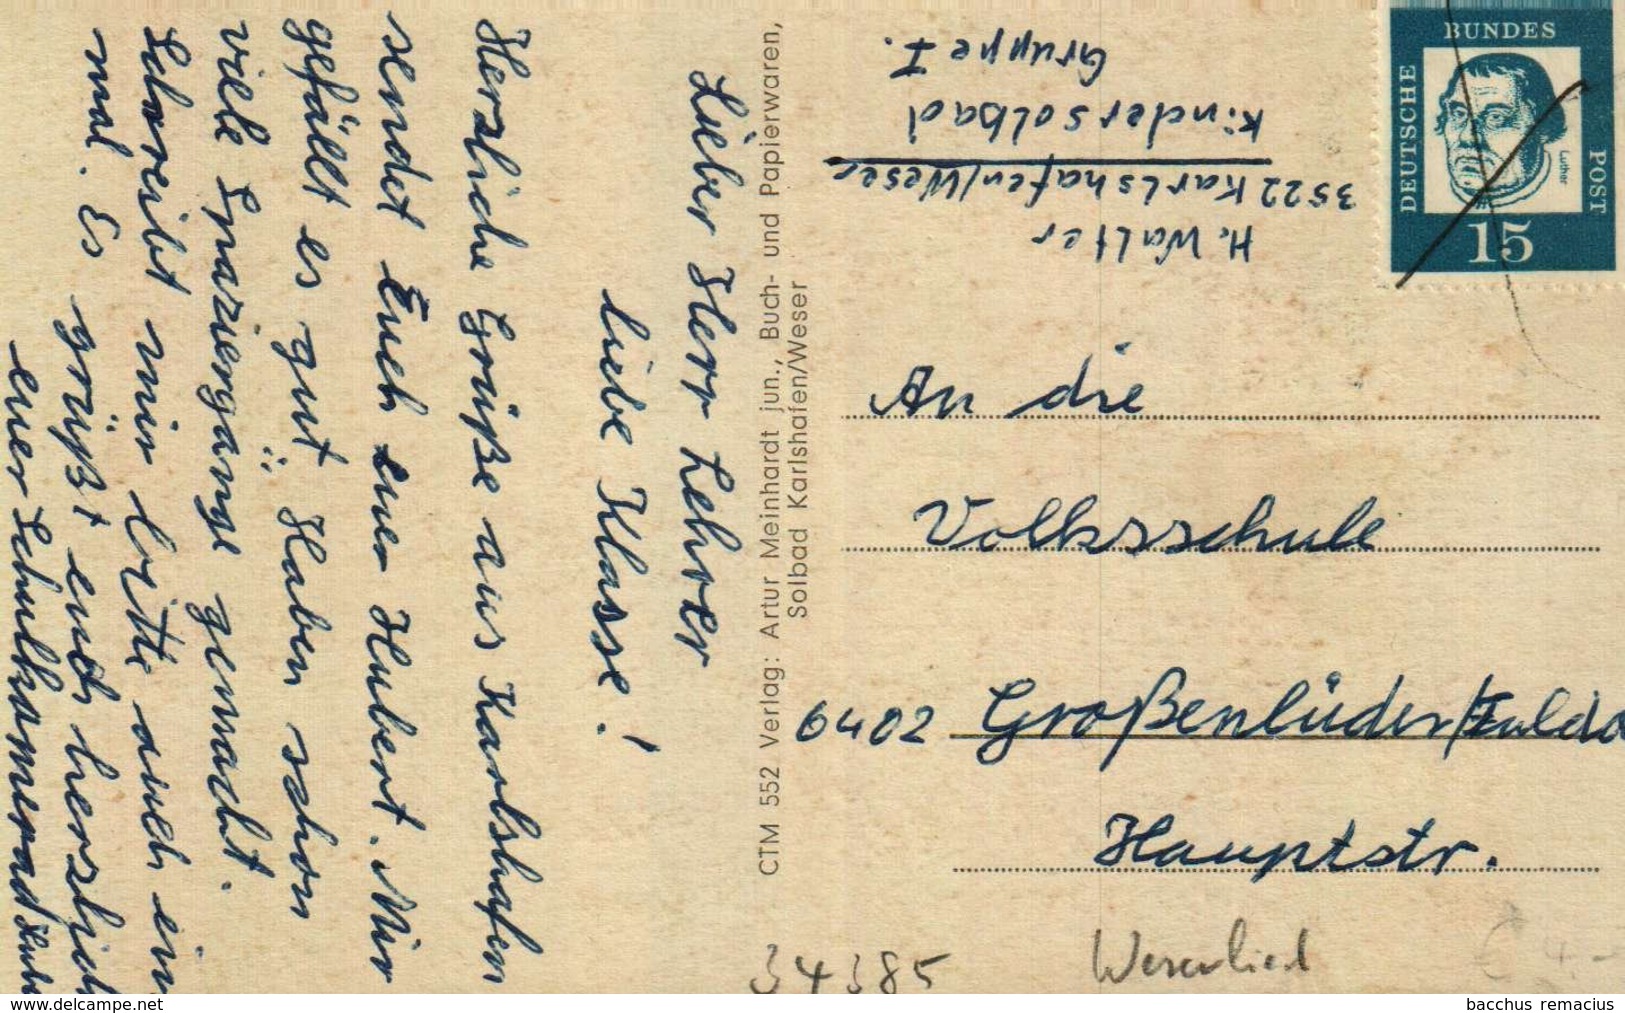 Lieber Herr Lehrer
liebe Klasse!
Herzliche Grüße aus Karlshafen
sendet Euch euer Hubert. Mir
gefällt es gut. Haben schon
viele Spaziergänge gemacht.
Schreibt mir bitte auch ein
mal. Es grüßt euch herzlich
euer Schulkamerad
CTM 552 Verlag: Artur Meinhardt jun., Buch- und Papierwaren,
Solbad Karlshafen/Weser
H. Walter
3522 Karlshafen/Weser
Kindersolbad
Gruppe I.
DEUTSCHE
BUNDES
POST
Luther
15
An die
Volksschule
6402 Großenlüder/Fulda
Hauptstr.
34385
Weserlied
€ 4.-
www.delcampe.net
bacchus remacius